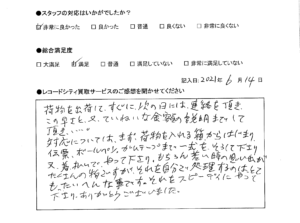 ●スタッフの対応はいかがでしたか？
☑非常に良かった □良かった □普通 □良くない □非常に良くない
●総合満足度
□大満足 ☑満足 □普通 □満足していない □非常に満足していない
記入日 2021年6月14日
●レコードシティ買取サービスのご感想を聞かせてください
荷物を出荷して、すぐに、次の日には、連絡を頂き
この早さと、又、ていねいな金額の説明まで、して
頂き、
対応については、まず、荷物を入れる箱からはじまり
伝票、ボールペン、ガムテープまで一式をそろえて下さり
又、着払いで、やって下さり、もちろん若い時の思い出が
たくさんの物ですが、それを自分で処理するのはとて
もたいへんな事です。それをスピーディにやって
下さり、ありがとうございました。